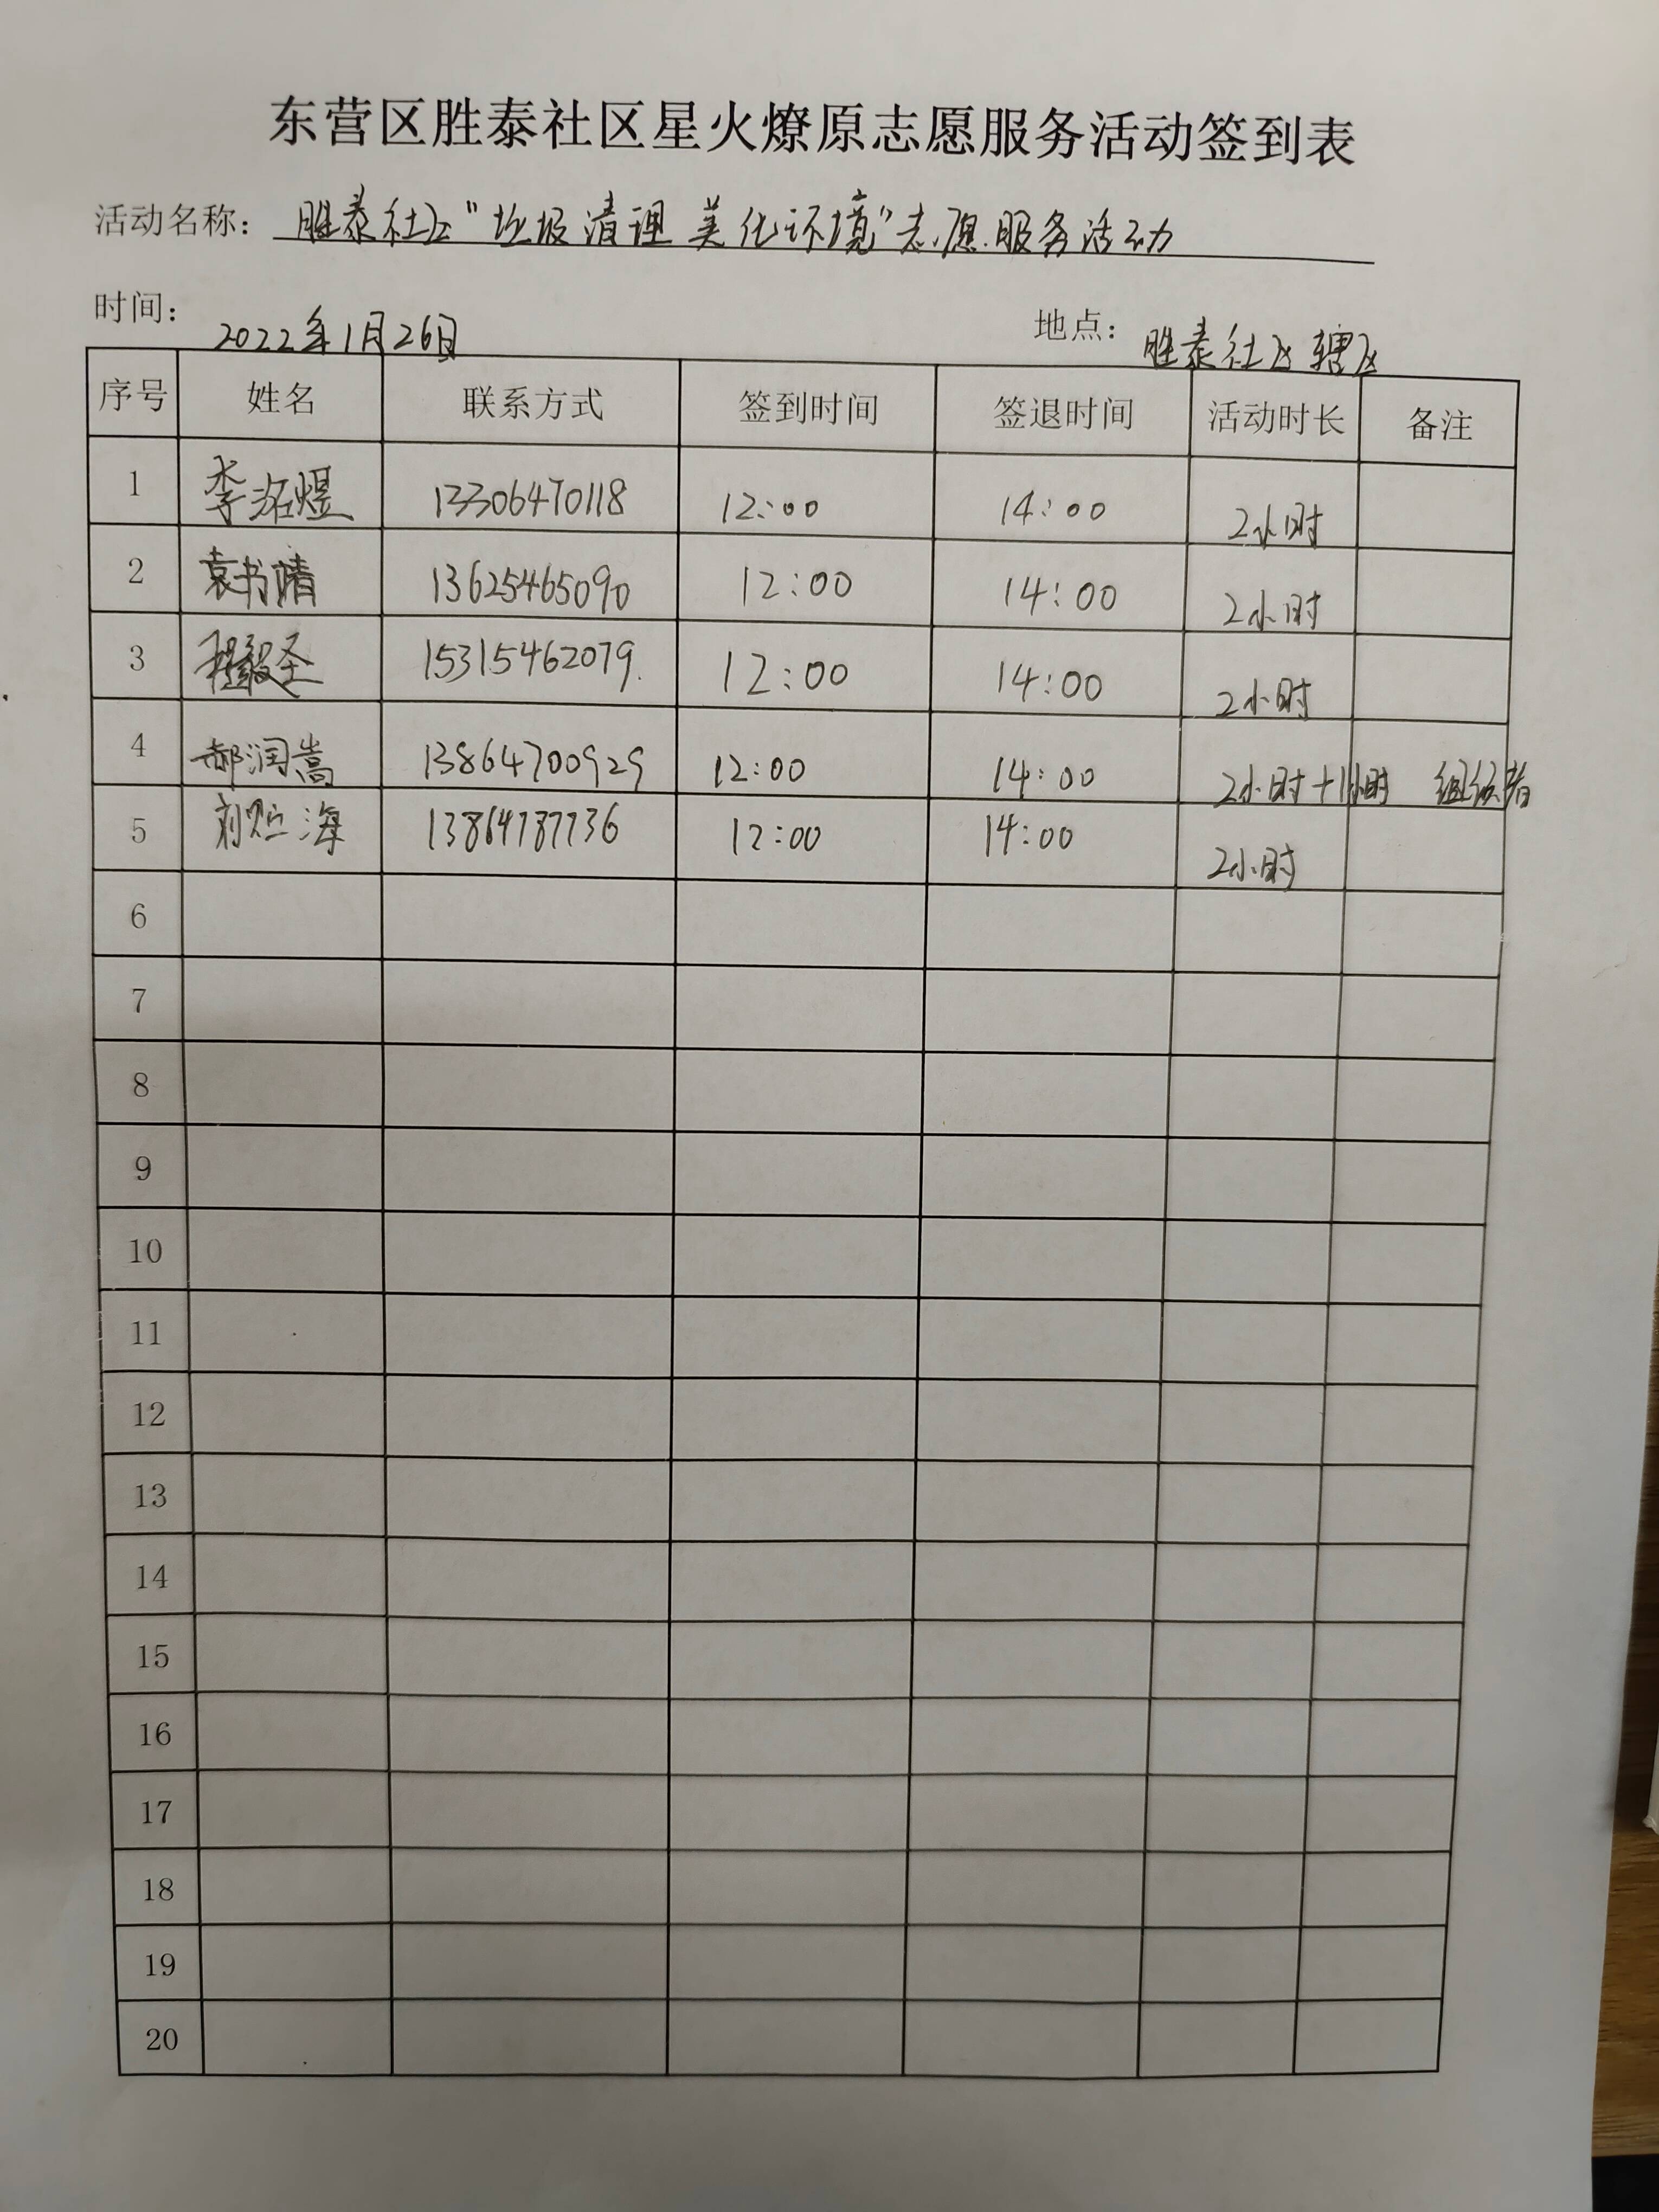 东营区胜泰社区星火燎原志愿服务活动签到表
活动名称：胜泰社区“垃圾清理 美化环境”志愿服务活动
时间：2022年1月26日 地点：胜泰社区辖区
序号 姓名 联系方式 签到时间 签退时间 活动时长 备注
1 李沼煜 13306470118 12:00 14:00 2小时
2 袁书靖 13625465090 12:00 14:00 2小时
3 程毅圣 15315462079 12:00 14:00 2小时
4 郝润嵩 13864700929 12:00 14:00 2小时+1小时 组织者
5 海 13864787736 12:00 14:00 2小时
6
7
8
9
10
11
12
13
14
15
16
17
18
19
20